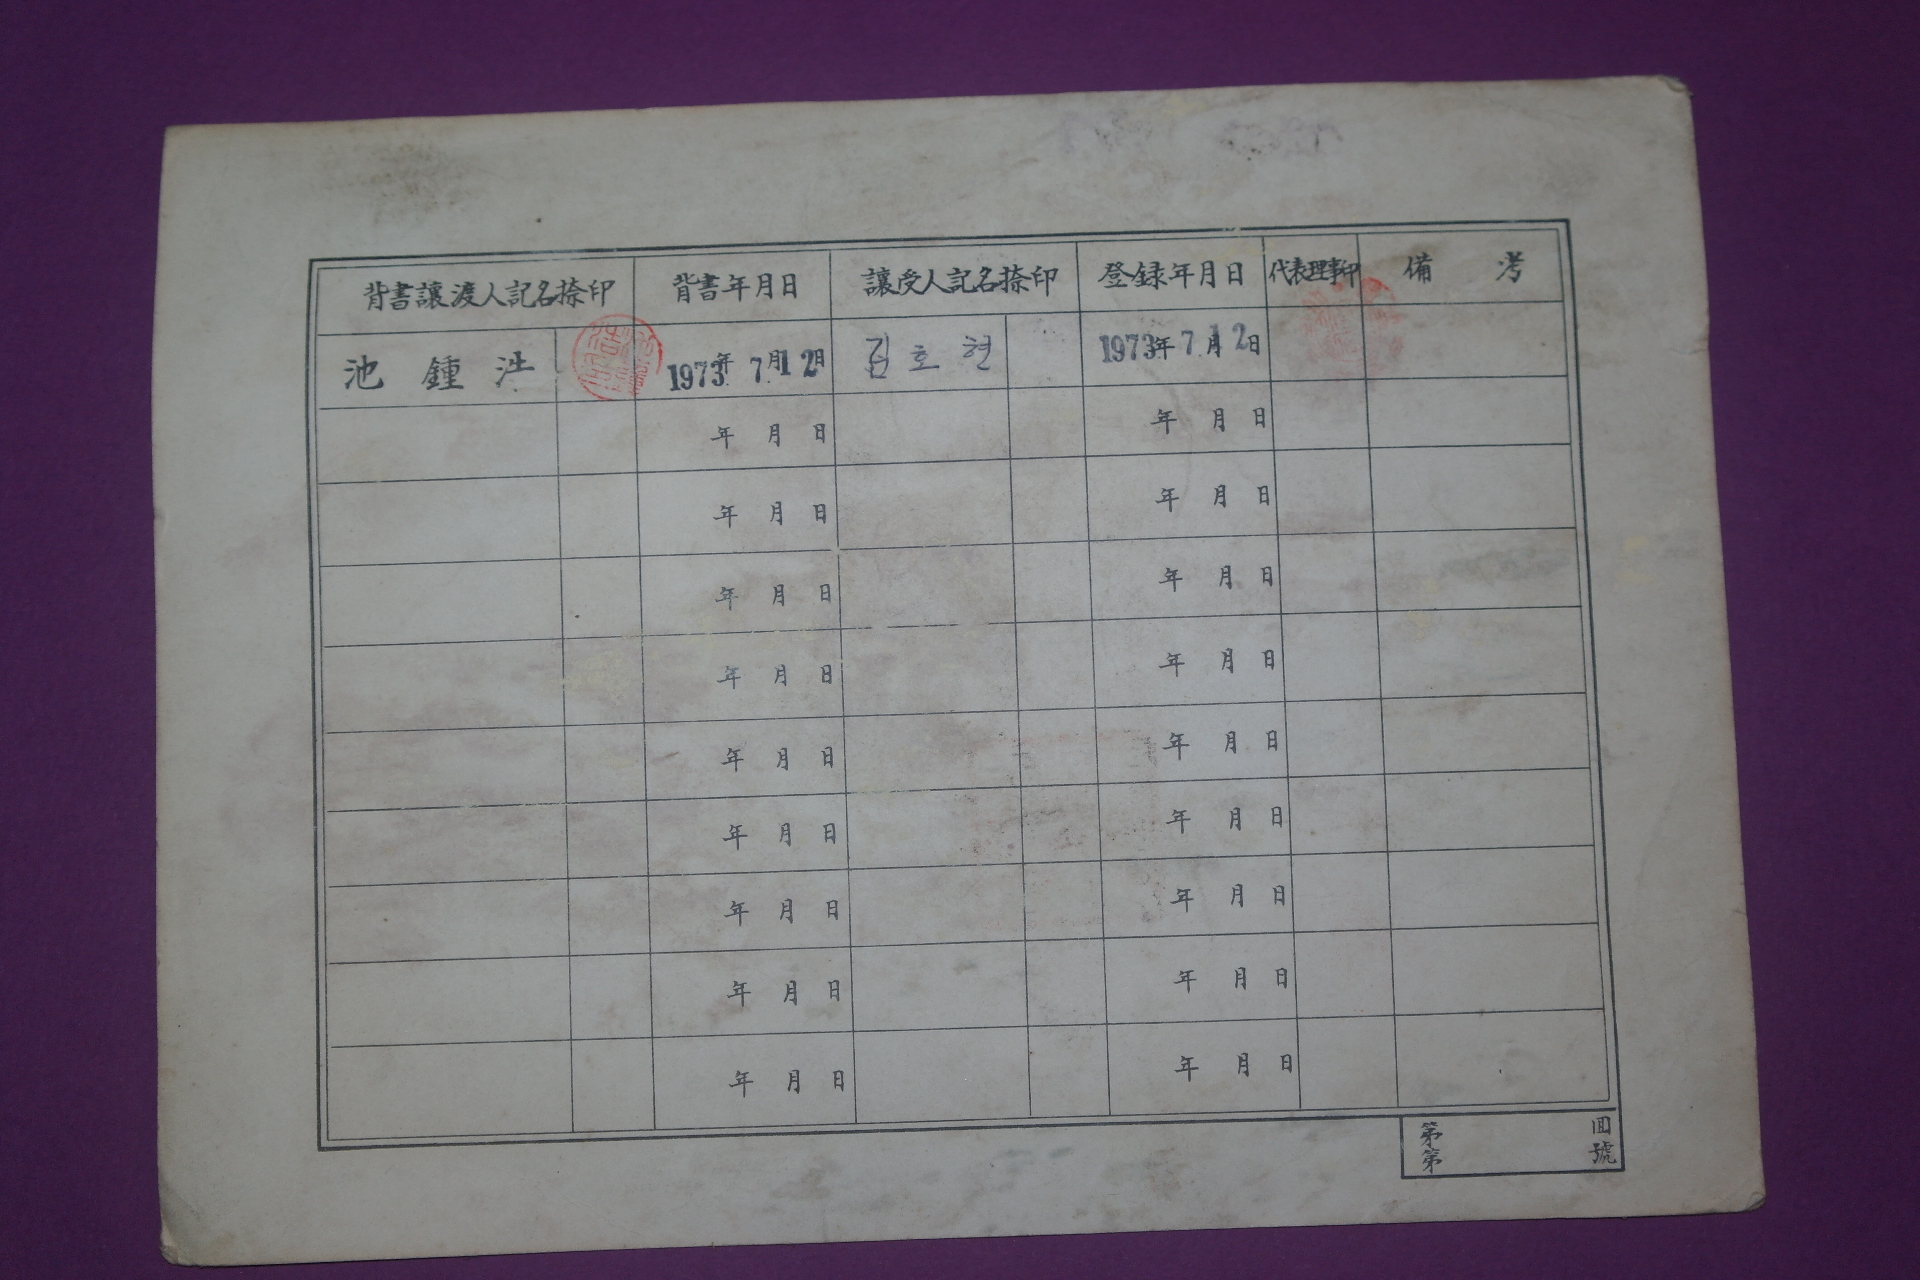 背書讓渡人記名捺印 背書年月日 讓受人記名捺印 登録年月日 代表理事印 備考
池鍾 1973年7月12日 김호현 1973年7月12日
年月日 年月日
年月日 年月日
年月日 年月日
年月日 年月日
年月日 年月日
年月日 年月日
年月日 年月日
年月日 年月日
年月日 年月日
第 回
第 號